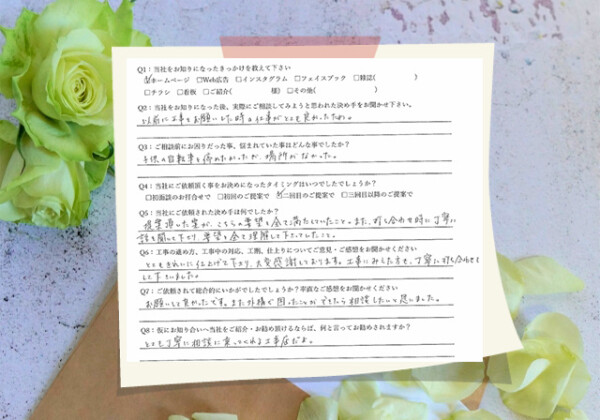 Q1：当社をお知りになったきっかけを教えて下さい
☑ホームページ □Web広告 □インスタグラム □フェイスブック □雑誌( )
□チラシ □看板 □ご紹介( 様) □その他( )
Q2：当社をお知りになった後、実際にご相談してみようと思われた決め手をお聞かせ下さい。
以前に工事をお願いした時の仕事がとても良かったため。
Q3：ご相談前にお困りだった事、悩まれていた事はどんな事でしたか？
子供の自転車を停めたかったが、場所がなかった。
Q4：当社にご依頼頂く事をお決めになったタイミングはいつでしたでしょうか？
□初面談のお打合せで □初回のご提案で ☑二回目のご提案で □三回目以降のご提案で
Q5：当社にご依頼された決め手は何でしたか？
提案頂いた案が、こちらの要望を全て満たしていたこと。また、打ち合わせ時に丁寧に
話を聞いて下さり、要望を全て理解して下さったこと。
Q6：工事の進め方、工事中の対応、工期、仕上りについてご意見・ご感想をお聞かせください
とてもきれいに仕上げて下さり、大変感謝しております。工事にみえた方も、丁寧に打ち合わせを
して下さいました。
Q7：ご依頼されて総合的にいかがでしたでしょうか？率直なご感想をお聞かせください
お願いして良かったです。また外構で困ったことがでてきたら相談したいと思いました。
Q8：仮にお知り合いへ当社をご紹介・お勧め頂けるならば、何と言ってお勧めされますか？
とても丁寧に相談に乗ってくれる工事店だよ。